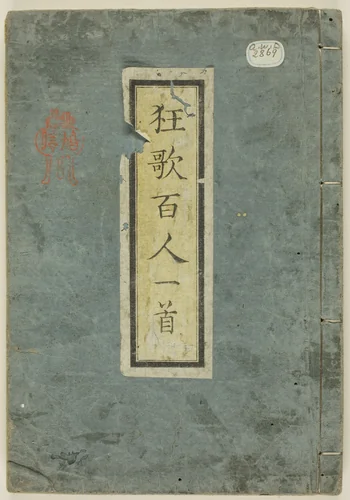 狂歌百人一首
2869